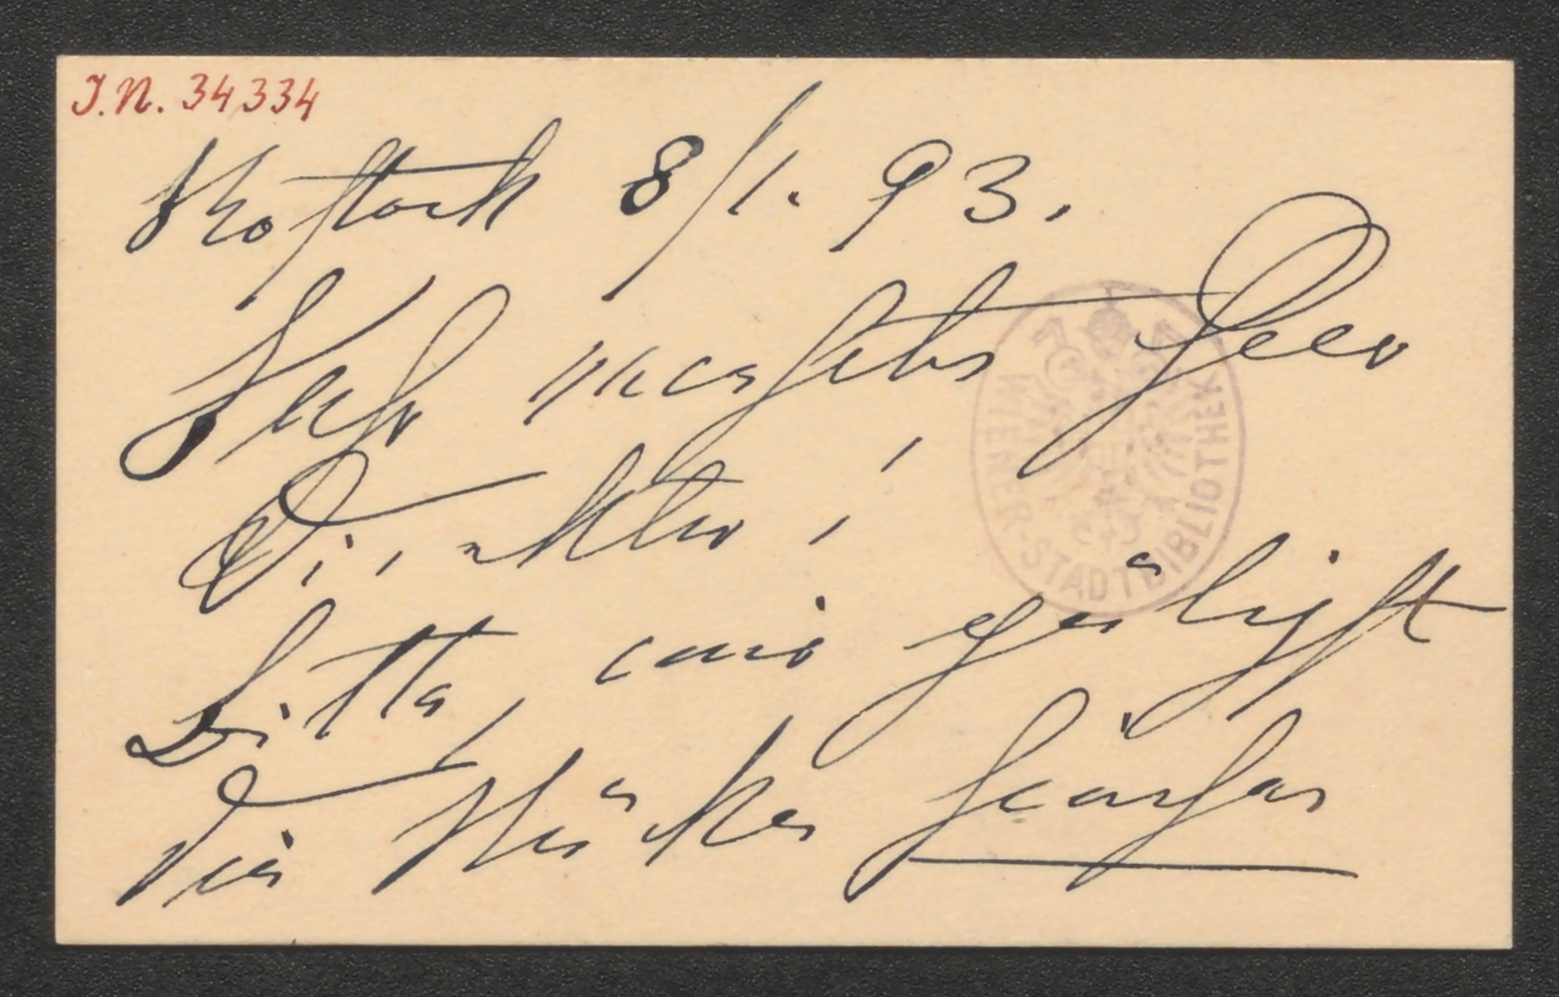 I.N. 34334
Rostock 8/1. 93.
Sehr geehrter Herr
Director!
Bitte mir gefälligst
die Stücke
WIENER-STADTBIBLIOTHEK